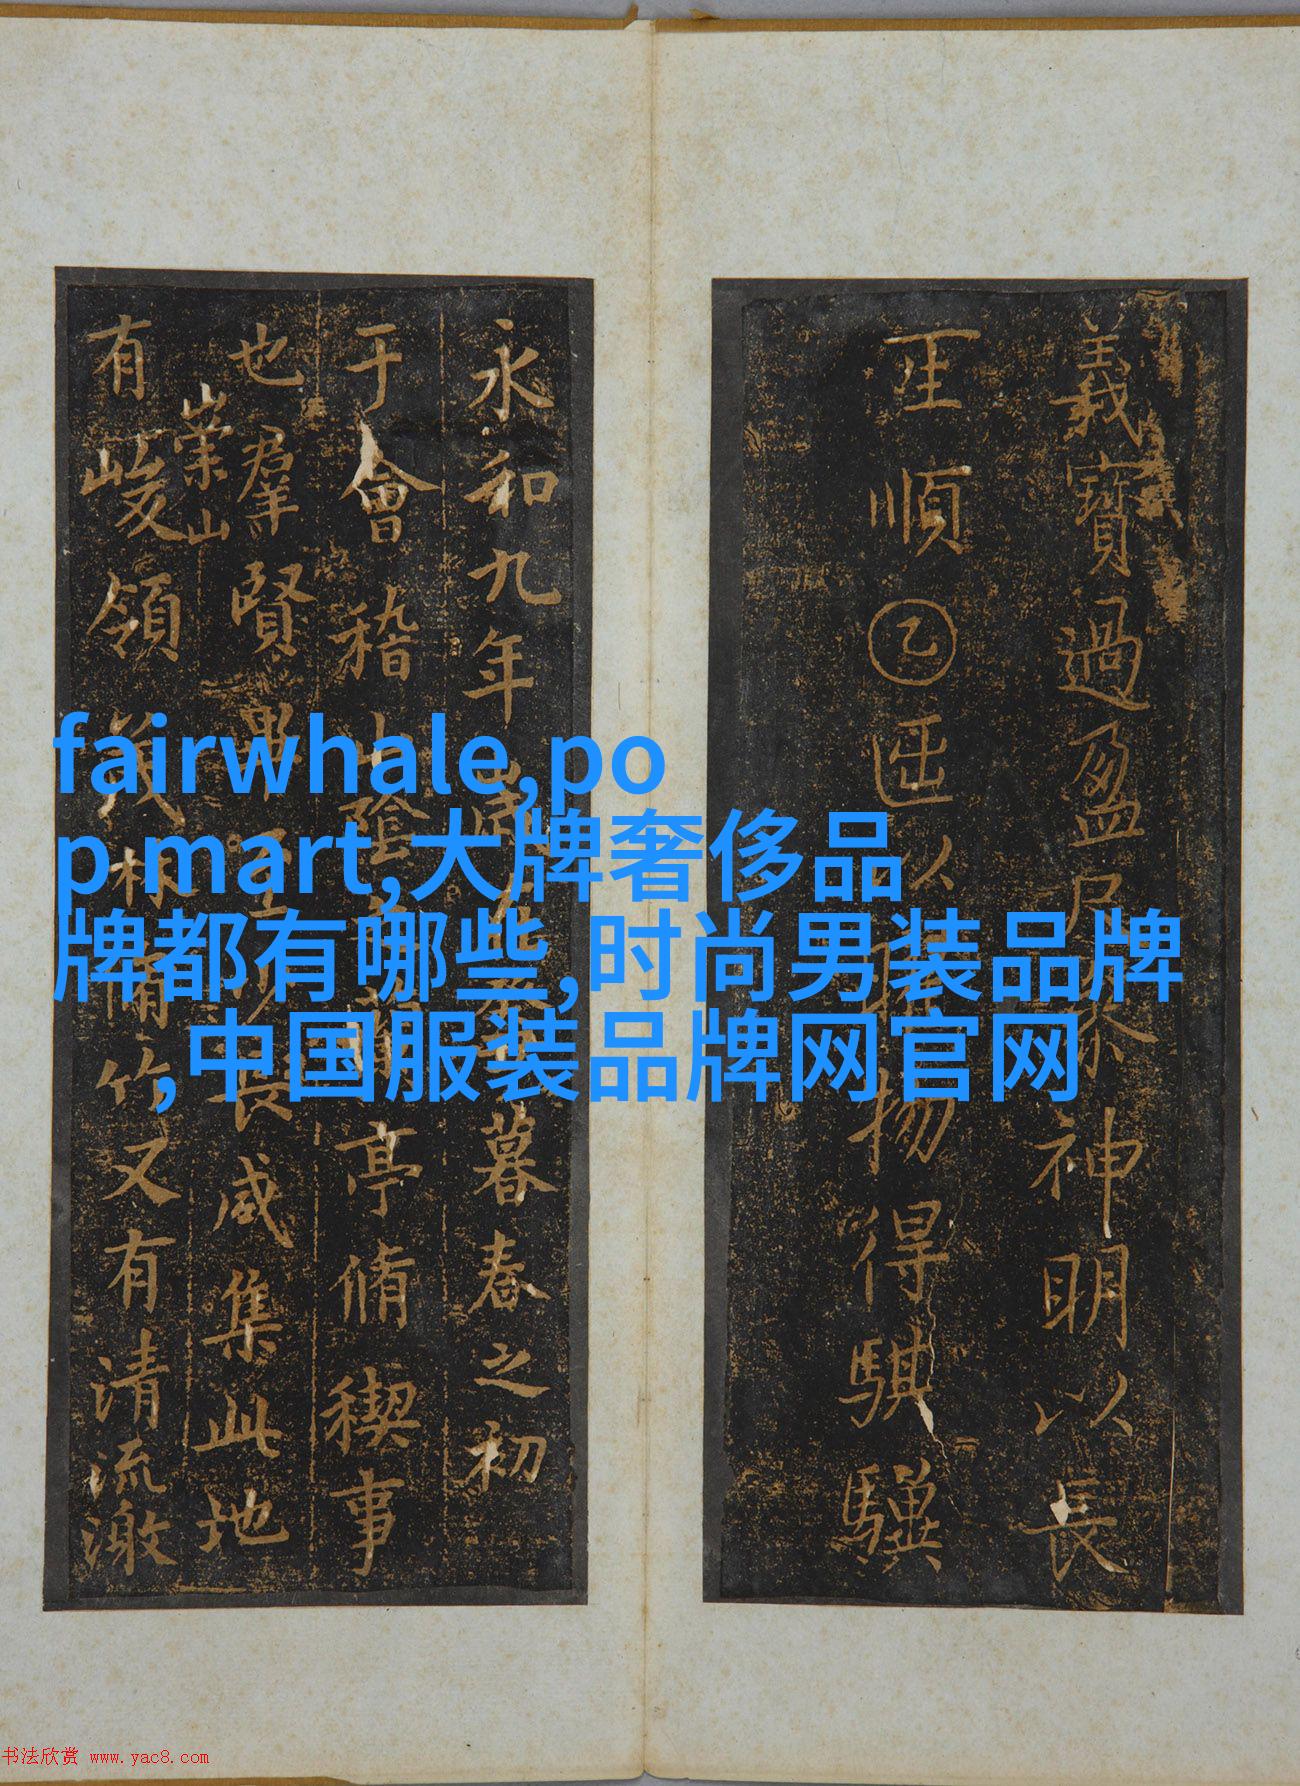 fairwhale,po
p mart,大牌奢侈品
牌都有哪些,时尚男装品牌
,中国服装品牌网官网
義寶過盈尺神明以長
順以揚得騏驥
永和九年歲在癸丑暮春之初
于會稽山陰之蘭亭脩稧事
也羣賢畢至少長咸集此地
崇山
有峻領茂林脩竹又有清流激
书法欣赏 www.yac8.com